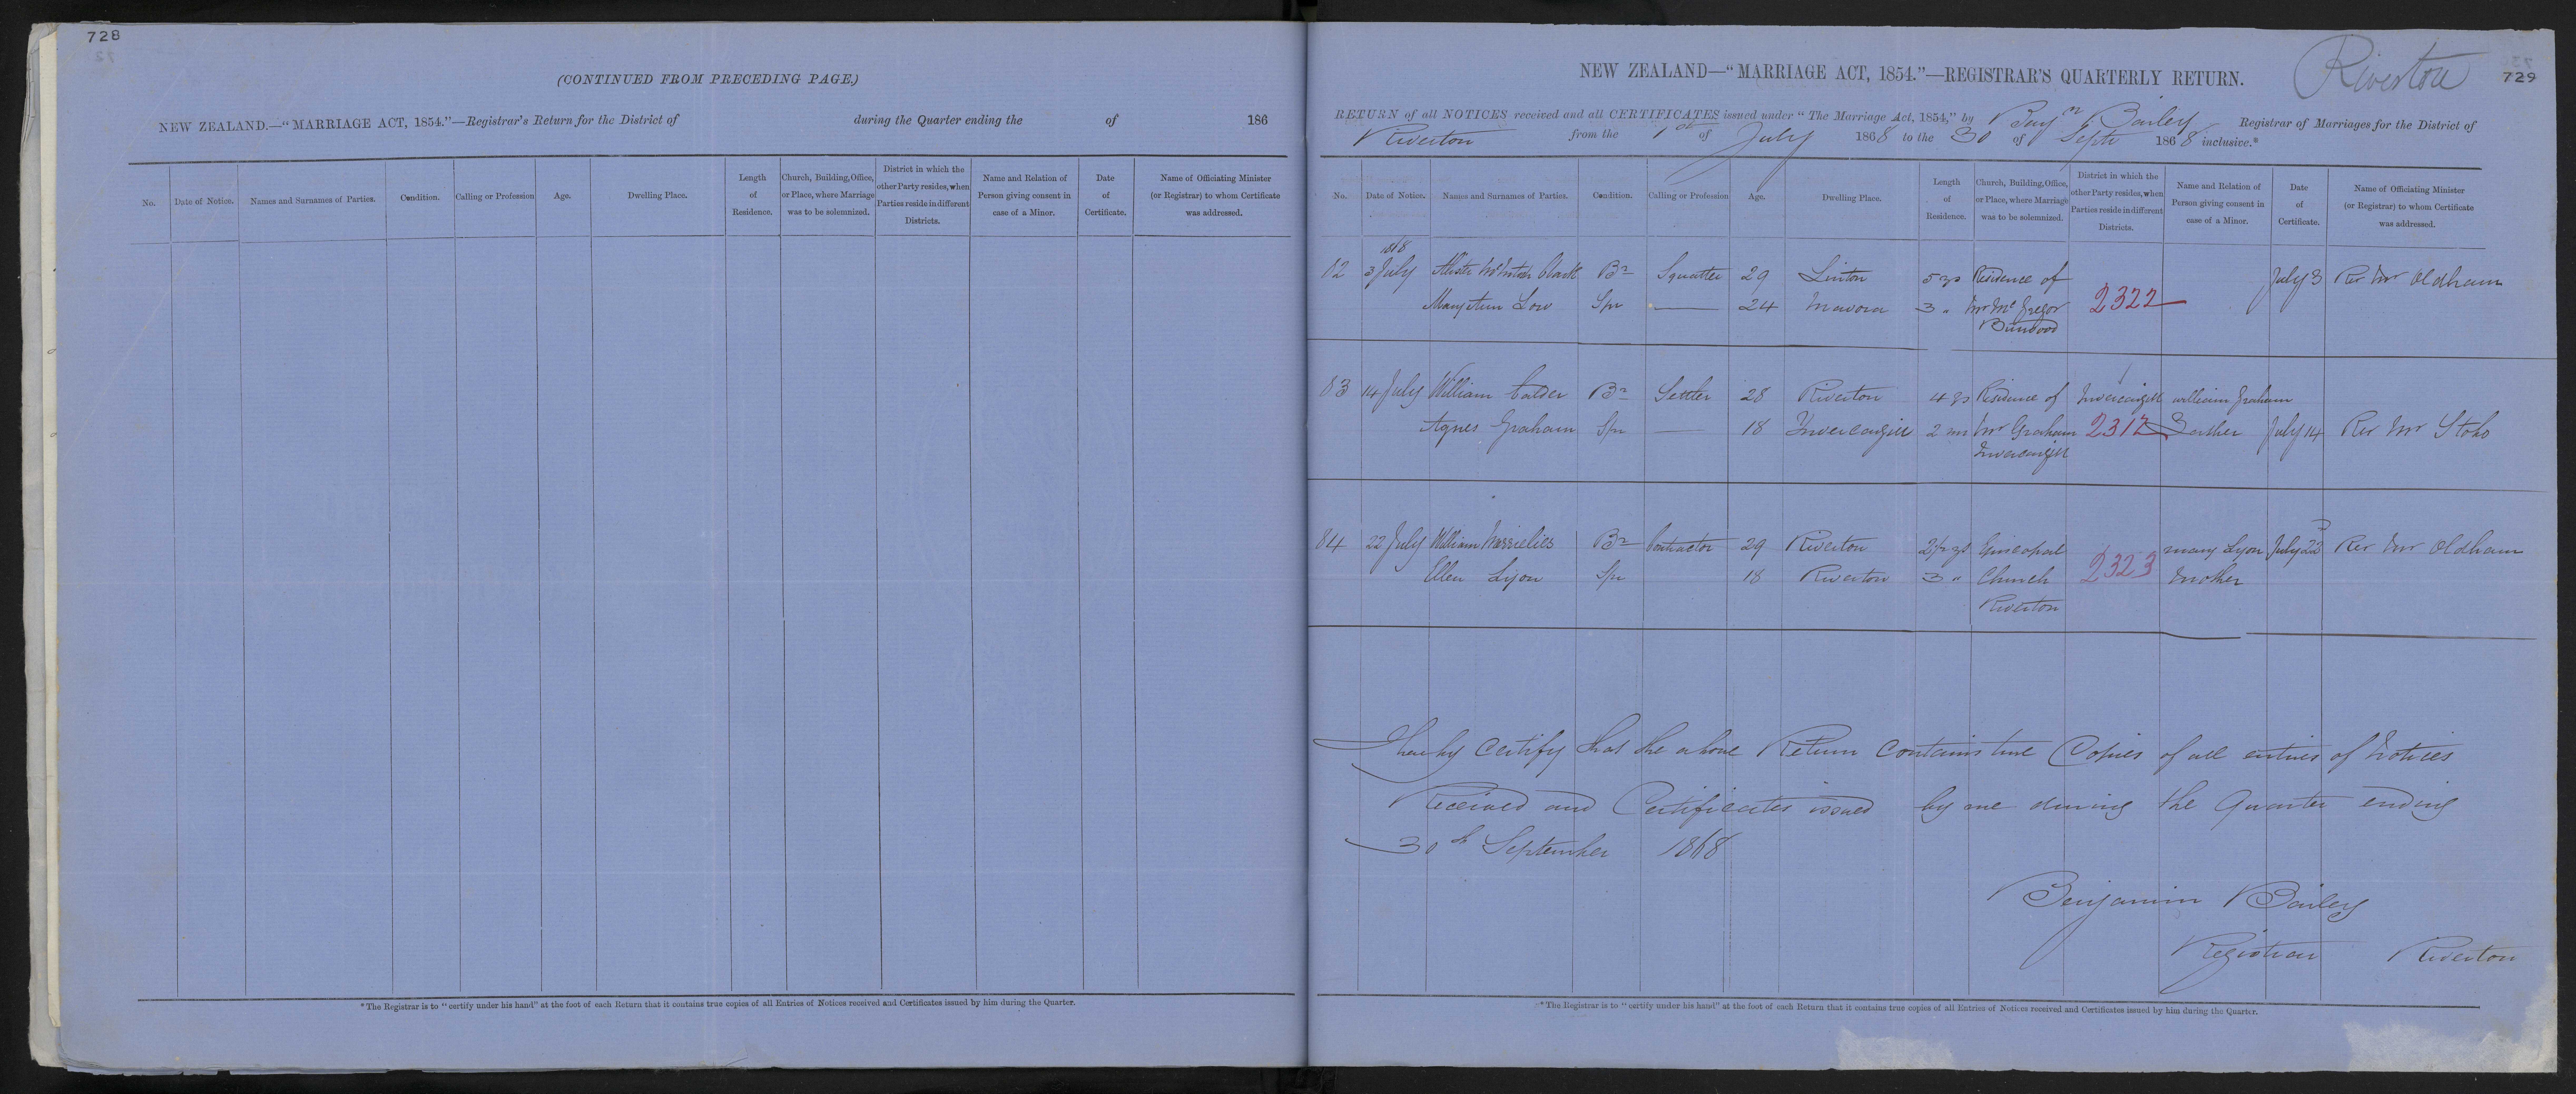 728
(CONTINUED FROM PRECEDING PAGE.)
NEW ZEALAND.—"MARRIAGE ACT, 1854."—Registrar's Return for the District of during the Quarter ending the of 186
No. Date of Notice. Names and Surnames of Parties. Condition. Calling or Profession Age. Dwelling Place. Length of Residence. Church, Building, Office, or Place, where Marriage was to be solemnized. District in which the other Party resides, when Parties reside in different Districts. Name and Relation of Person giving consent in case of a Minor. Date of Certificate. Name of Officiating Minister (or Registrar) to whom Certificate was addressed.
*The Registrar is to "certify under his hand" at the foot of each Return that it contains true copies of all Entries of Notices received and Certificates issued by him during the Quarter.
Riverton
729
NEW ZEALAND—"MARRIAGE ACT, 1854."—REGISTRAR'S QUARTERLY RETURN.
RETURN of all NOTICES received and all CERTIFICATES issued under "The Marriage Act, 1854," by Benjn Bailey Registrar of Marriages for the District of
Riverton from the 1st of July 1868 to the 30 of Septr 1868 inclusive.*
No. Date of Notice. Names and Surnames of Parties. Condition. Calling or Profession Age. Dwelling Place. Length of Residence. Church, Building, Office, or Place, where Marriage was to be solemnized. District in which the other Party resides, when Parties reside in different Districts. Name and Relation of Person giving consent in case of a Minor. Date of Certificate. Name of Officiating Minister (or Registrar) to whom Certificate was addressed.
1868
82 3 July McIntosh Clark Br Squatter 29 Linton 5 ys Residence of July 3 Rev Mr Oldham
Mary Ann Low Spr — 24 Mavora 3 " Mr McGregor 2322
83 14 July William Calder Br Settler 28 Riverton 4 ys Residence of Invercargill William Graham
Agnes Graham Spr — 18 Invercargill 2 ms Mr Graham 2317 Father July 14 Rev Mr Stobo
Invercargill
84 22 July William Br Contractor 29 Riverton 2½ ys Episcopal Mary Lyon July 22 Rev Mr Oldham
Ellen Lyon Spr 18 Riverton 3 " Church 2323 Mother
Riverton
I hereby Certify that the above Return contains true Copies of all entries of Notices
Received and Certificates issued by me during the Quarter ending
30th September 1868
Benjamin Bailey
Registrar Riverton
*The Registrar is to "certify under his hand" at the foot of each Return that it contains true copies of all Entries of Notices received and Certificates issued by him during the Quarter.